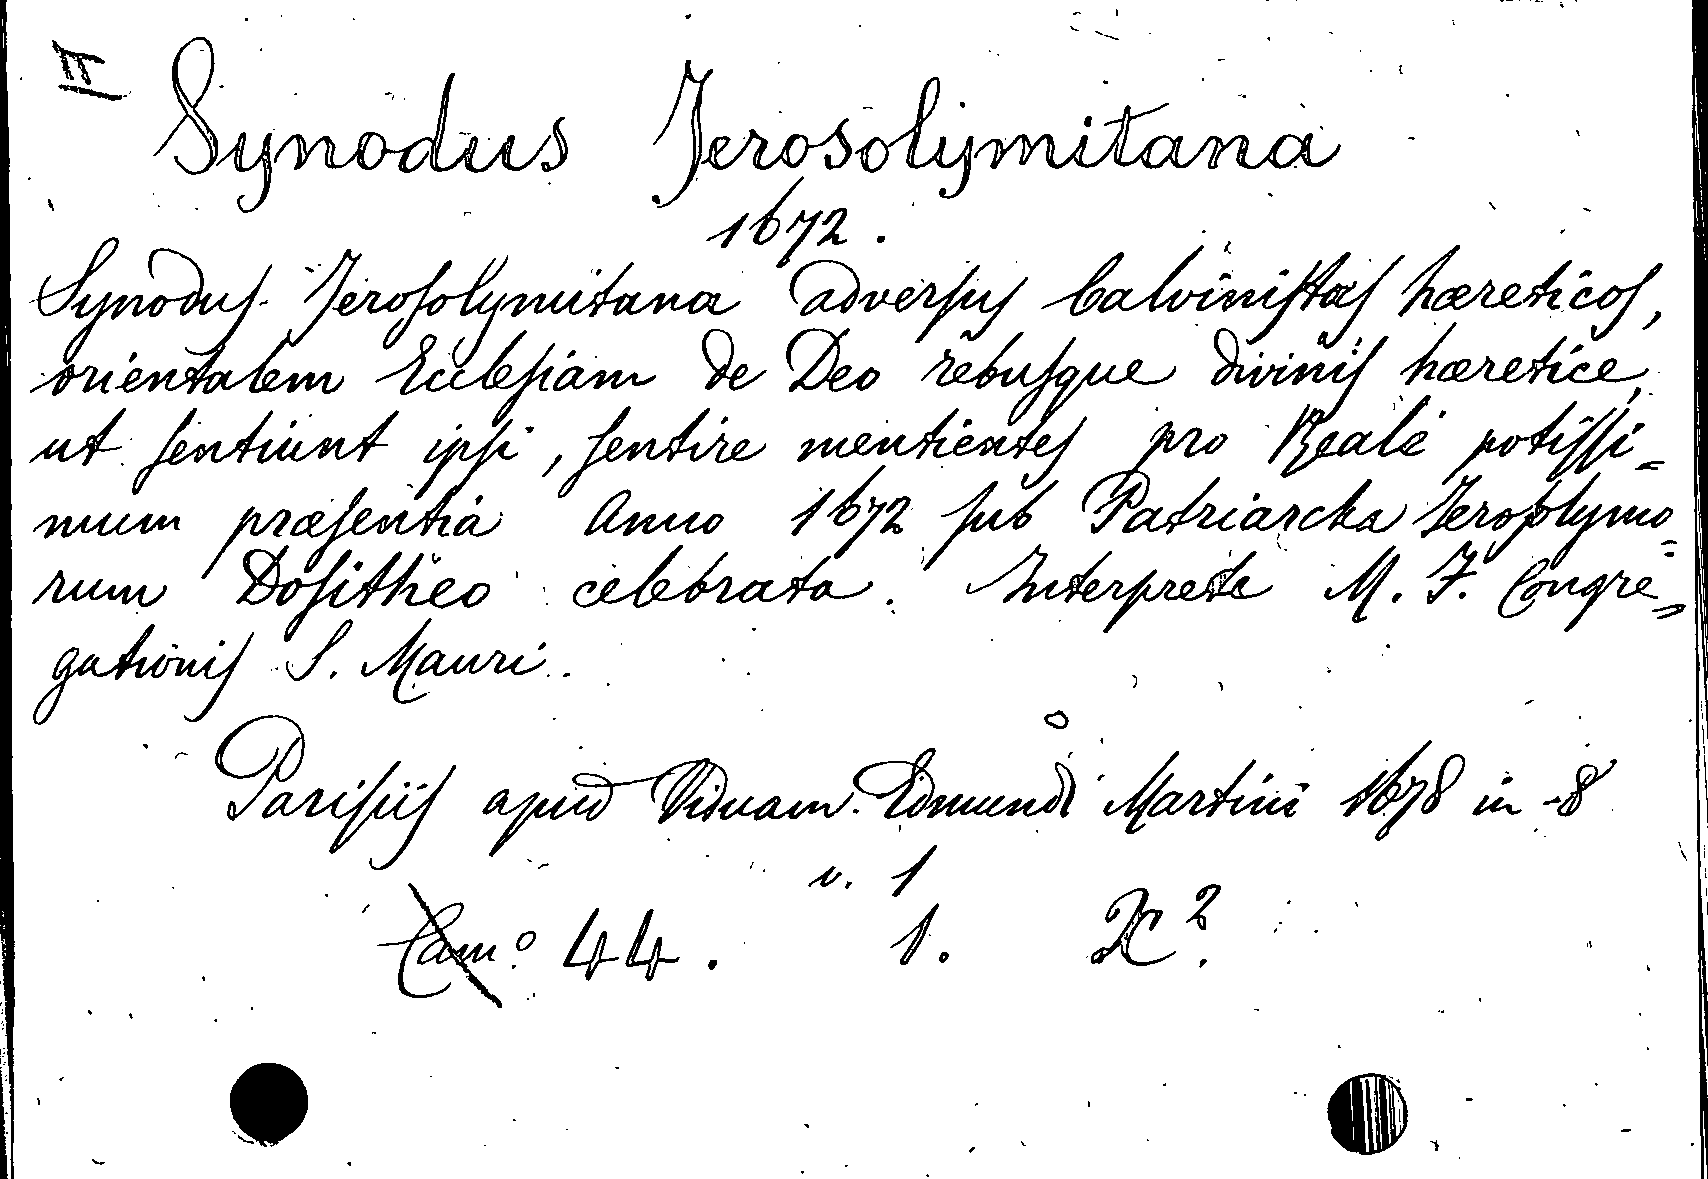 II
Synodus Jerosolymitana
1672.
Synodus Jerosolymitana adversus Calvinistas hæreticos,
orientalem Ecclesiam de Deo rebusque divinis hæretice,
ut sentiunt ipsi, sentire mentientes pro Reali potissi=
mum præsentia Anno 1672 sub Patriarcha Jerosolymo=
rum Dositheo celebrata. Interprete M. F. Congre=
gationis S. Mauri.
Parisiis apud Viduam Edmundi Martini 1678 in-8°
v. 1
Cam° 44. 1.